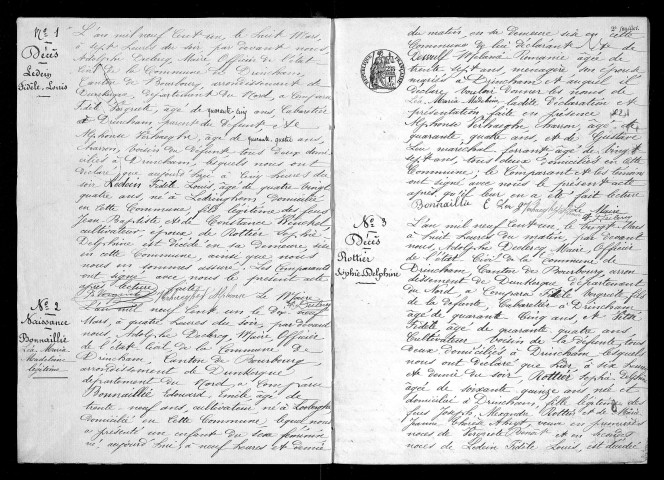 Nº 1
Décès
Ledein
Fidèle, Louis
L'an mil neuf cent un, le huit Mars,
à sept heures du soir, par devant nous,
Adolphe Declercq, Maire Officier de l'état
Civil de la Commune de Drincham,
Canton de Bourbourg, arrondissement de
Dunkerque, département du Nord, a comparu
Fidèle Vergriete, âgé de quarante cinq ans, Cabaretier
à Drincham, parent du défunt et de
Alphonse Verhaeghe, âgé de quarante quatre ans,
Charron, voisin du défunt tous deux domi-
ciliés à Drincham, lesquels nous ont
déclaré que aujourd'hui à cinq heures du
soir Ledein Fidèle Louis, âgé de quatre vingt
quatre ans, né à Ledringhem, domicilié
en cette Commune, fils légitime des feus
Jean Baptiste et de Constance
cultivateur, époux de Rottier Sophie
Delphine est décédé en sa demeure, sise
en cette Commune, ainsi que nous
nous en sommes assuré. Les Comparants
ont signé avec nous le présent acte
après lecture faite.
Vergriete Verhaeghe Alphonse Le Maire
Declercq
Nº 2
Naissance
Bonnaillie
Léa, Maria
Madeleine
légitime
L'an mil neuf cent un le dix neuf
Mars, à quatre heures du soir, par devant
nous, Adolphe Declercq Maire Officier
de l'état Civil de la Commune de
Drincham, Canton de Bourbourg,
arrondissement de Dunkerque
département du Nord, a comparu
Bonnaillie Edouard, Emile, âgé de
trente-neuf ans, cultivateur né à Looberghe
domicilié en cette Commune lequel nous
a présenté un enfant du sexe féminin
né aujourd'hui à neuf heures et demie
2e feuillet
du matin, en sa demeure sise en cette
Commune de lui déclarant et de
Mélanie Romanie âgée de
trente sept ans, ménagère son épouse
mariés à Drincham, et auquel il
déclare vouloir donner les noms de
Léa, Maria Madeleine, ladite déclaration et
présentation faite en présence de
Alphonse Verhaeghe charron, âgé de
quarante quatre ans et de Gustave
Leu maréchal ferrant, âgé de vingt
sept ans, tous deux domiciliés en cette
Commune, le Comparant et les témoins
ont signé avec nous le présent acte
après qu'il leur en a été fait lecture
Bonnaillie E Leu G Verhaeghe Le Maire
Declercq
Nº 3
Décès
Rottier
Sophie Delphine
L'an mil neuf cent un, le vingt Mars
à huit heures du matin, par devant
nous, Adolphe Declercq Maire Officier
de l'état Civil de la commune de
Drincham, Canton de Bourbourg arron-
dissement de Dunkerque département
du Nord a comparu Fidèle Vergriete fils
de la défunte, Cabaretier à Drincham,
âgé de quarante cinq ans, et
Fidèle âgé de quarante quatre ans
Cultivateur voisin de la défunte, tous
deux domiciliés à Drincham, lesquels
nous ont déclaré que hier, à six heures
et demie du soir, Rottier Sophie Delphine
âgée de soixante quinze ans née et
domiciliée à Drincham, fille légitime des
feus Joseph, Rottier et de Marie
Jeanne Thérèse veuve en premières
noces de Vergriete Benoît et en secondes
noces de Ledein Fidèle Louis, est décédée